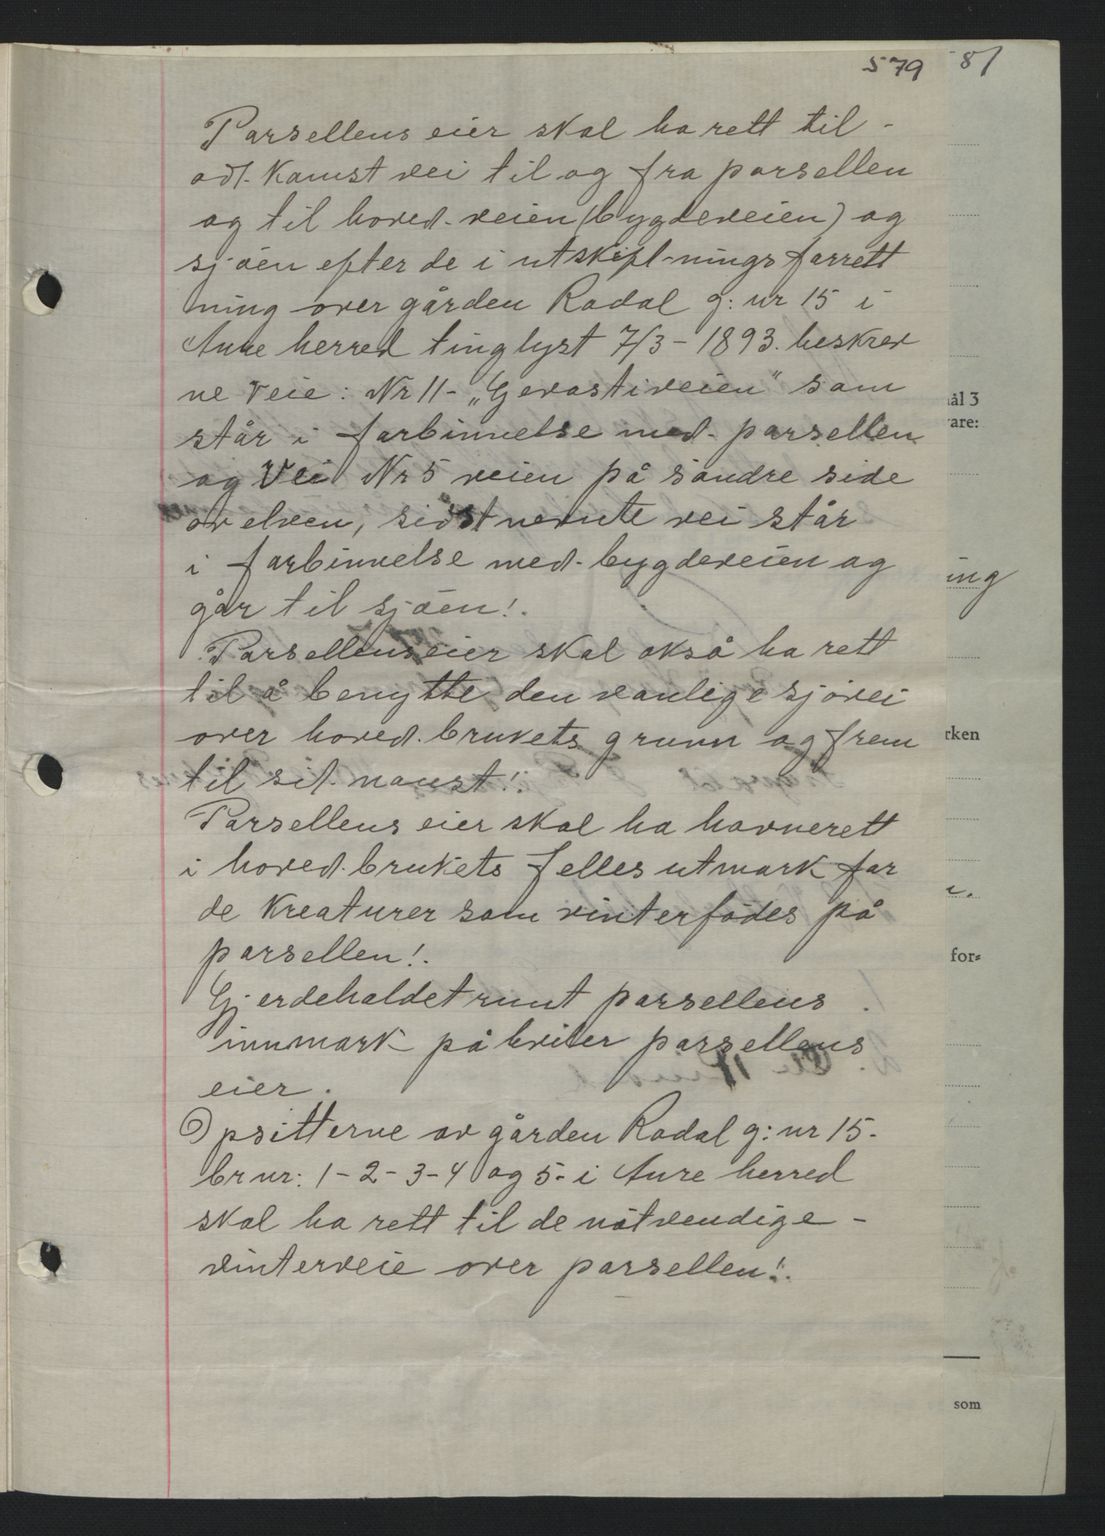 579 81
Parsellens eier skal ha rett til -
adt. Komst vei til og fra parsellen
og til hoved. veien (bygdeveien) og
sjøen efter de i utskift-nings forrett
ning over gården Rodal g: nr 15 i
Aure herred tinglyst 7/3 - 1893. beskrev
ne veie: Nr 11 - „Gerostiveien" som
står i forbinnelse med. parsellen
og Vei Nr 5 veien på søndre side
av elven, sidst nevnte vei står
i forbinnelse med. bygdeveien og
går til sjøen!.
Parsellens eier skal også ha rett
til å benytte den vanlige sjøvei
over hoved. brukets grunn og frem
til sit. naust!.
Parsellens eier skal ha havnerett
i hoved. brukets felles utmark for
de Kreaturer som vinterfødes på
parsellen!.
Gjerdeholdet runt parsellens
innmark påhviler parsellens
eier.
Opsitterne av gården Rodal g: nr 15.
br nr: 1 - 2 - 3 - 4 og 5 - i Aure herred
skal ha rett til de nøtvendige -
vinterveie over parsellen!.
ål 3
are:
ing
rken
for=
som